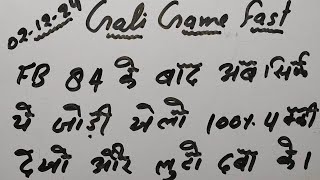 02-12-24
Gali Game fast
FB 84 के बाद अब सिर्फ
ये जोड़ी खेलो 100%
देखो और लुटो दबा के।